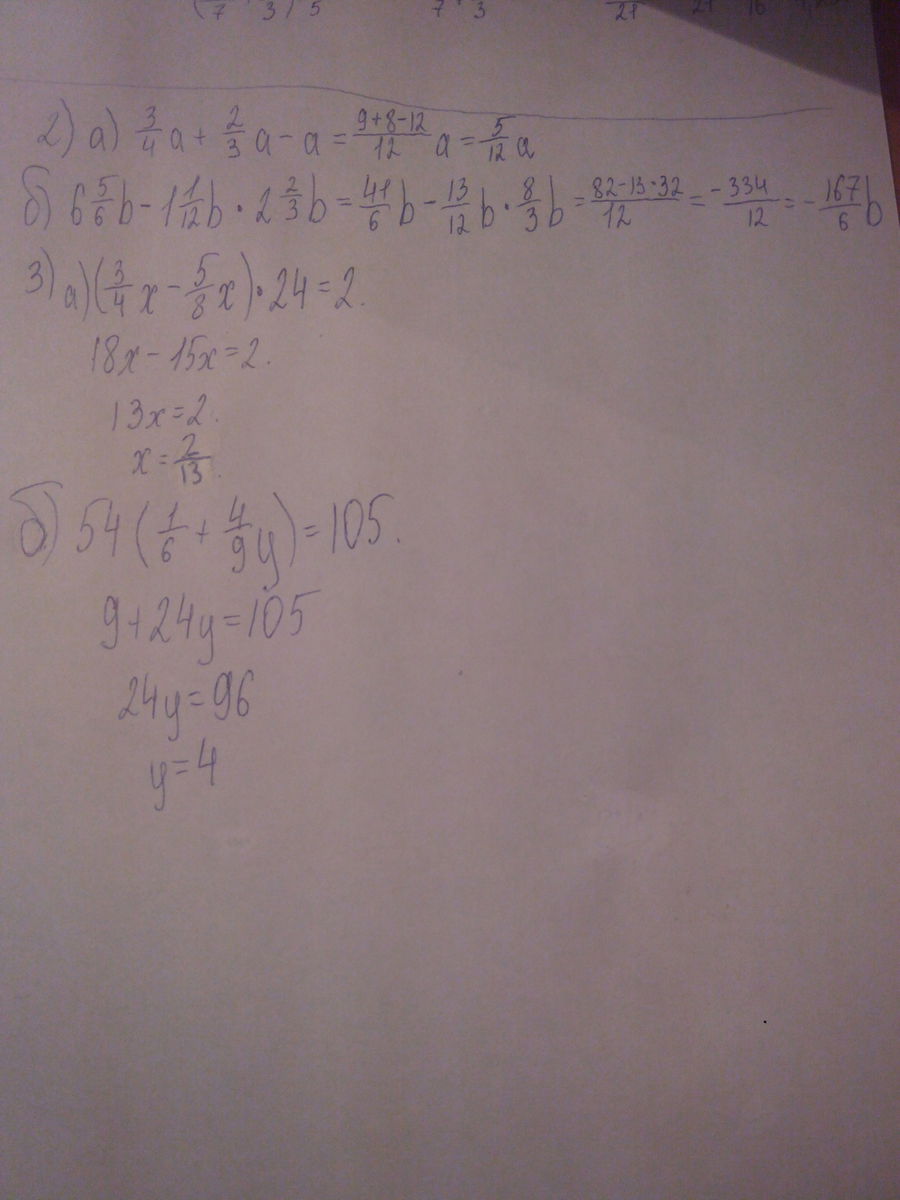 7 3 ) 5 7 3 21 21 16
2) а) 3/4 a + 2/3 a - a = (9+8-12)/12 a = 5/12 a
б) 6 5/6 b - 1 1/12 b · 2 2/3 b = 41/6 b - 13/12 b · 8/3 b = (82-13·32)/12 = -334/12 = -167/6 b
3) а) (3/4 x - 5/8 x) · 24 = 2.
18x - 15x = 2.
13x = 2.
x = 2/13.
б) 54 (1/6 + 4/9 y) = 105.
9 + 24y = 105
24y = 96
y = 4